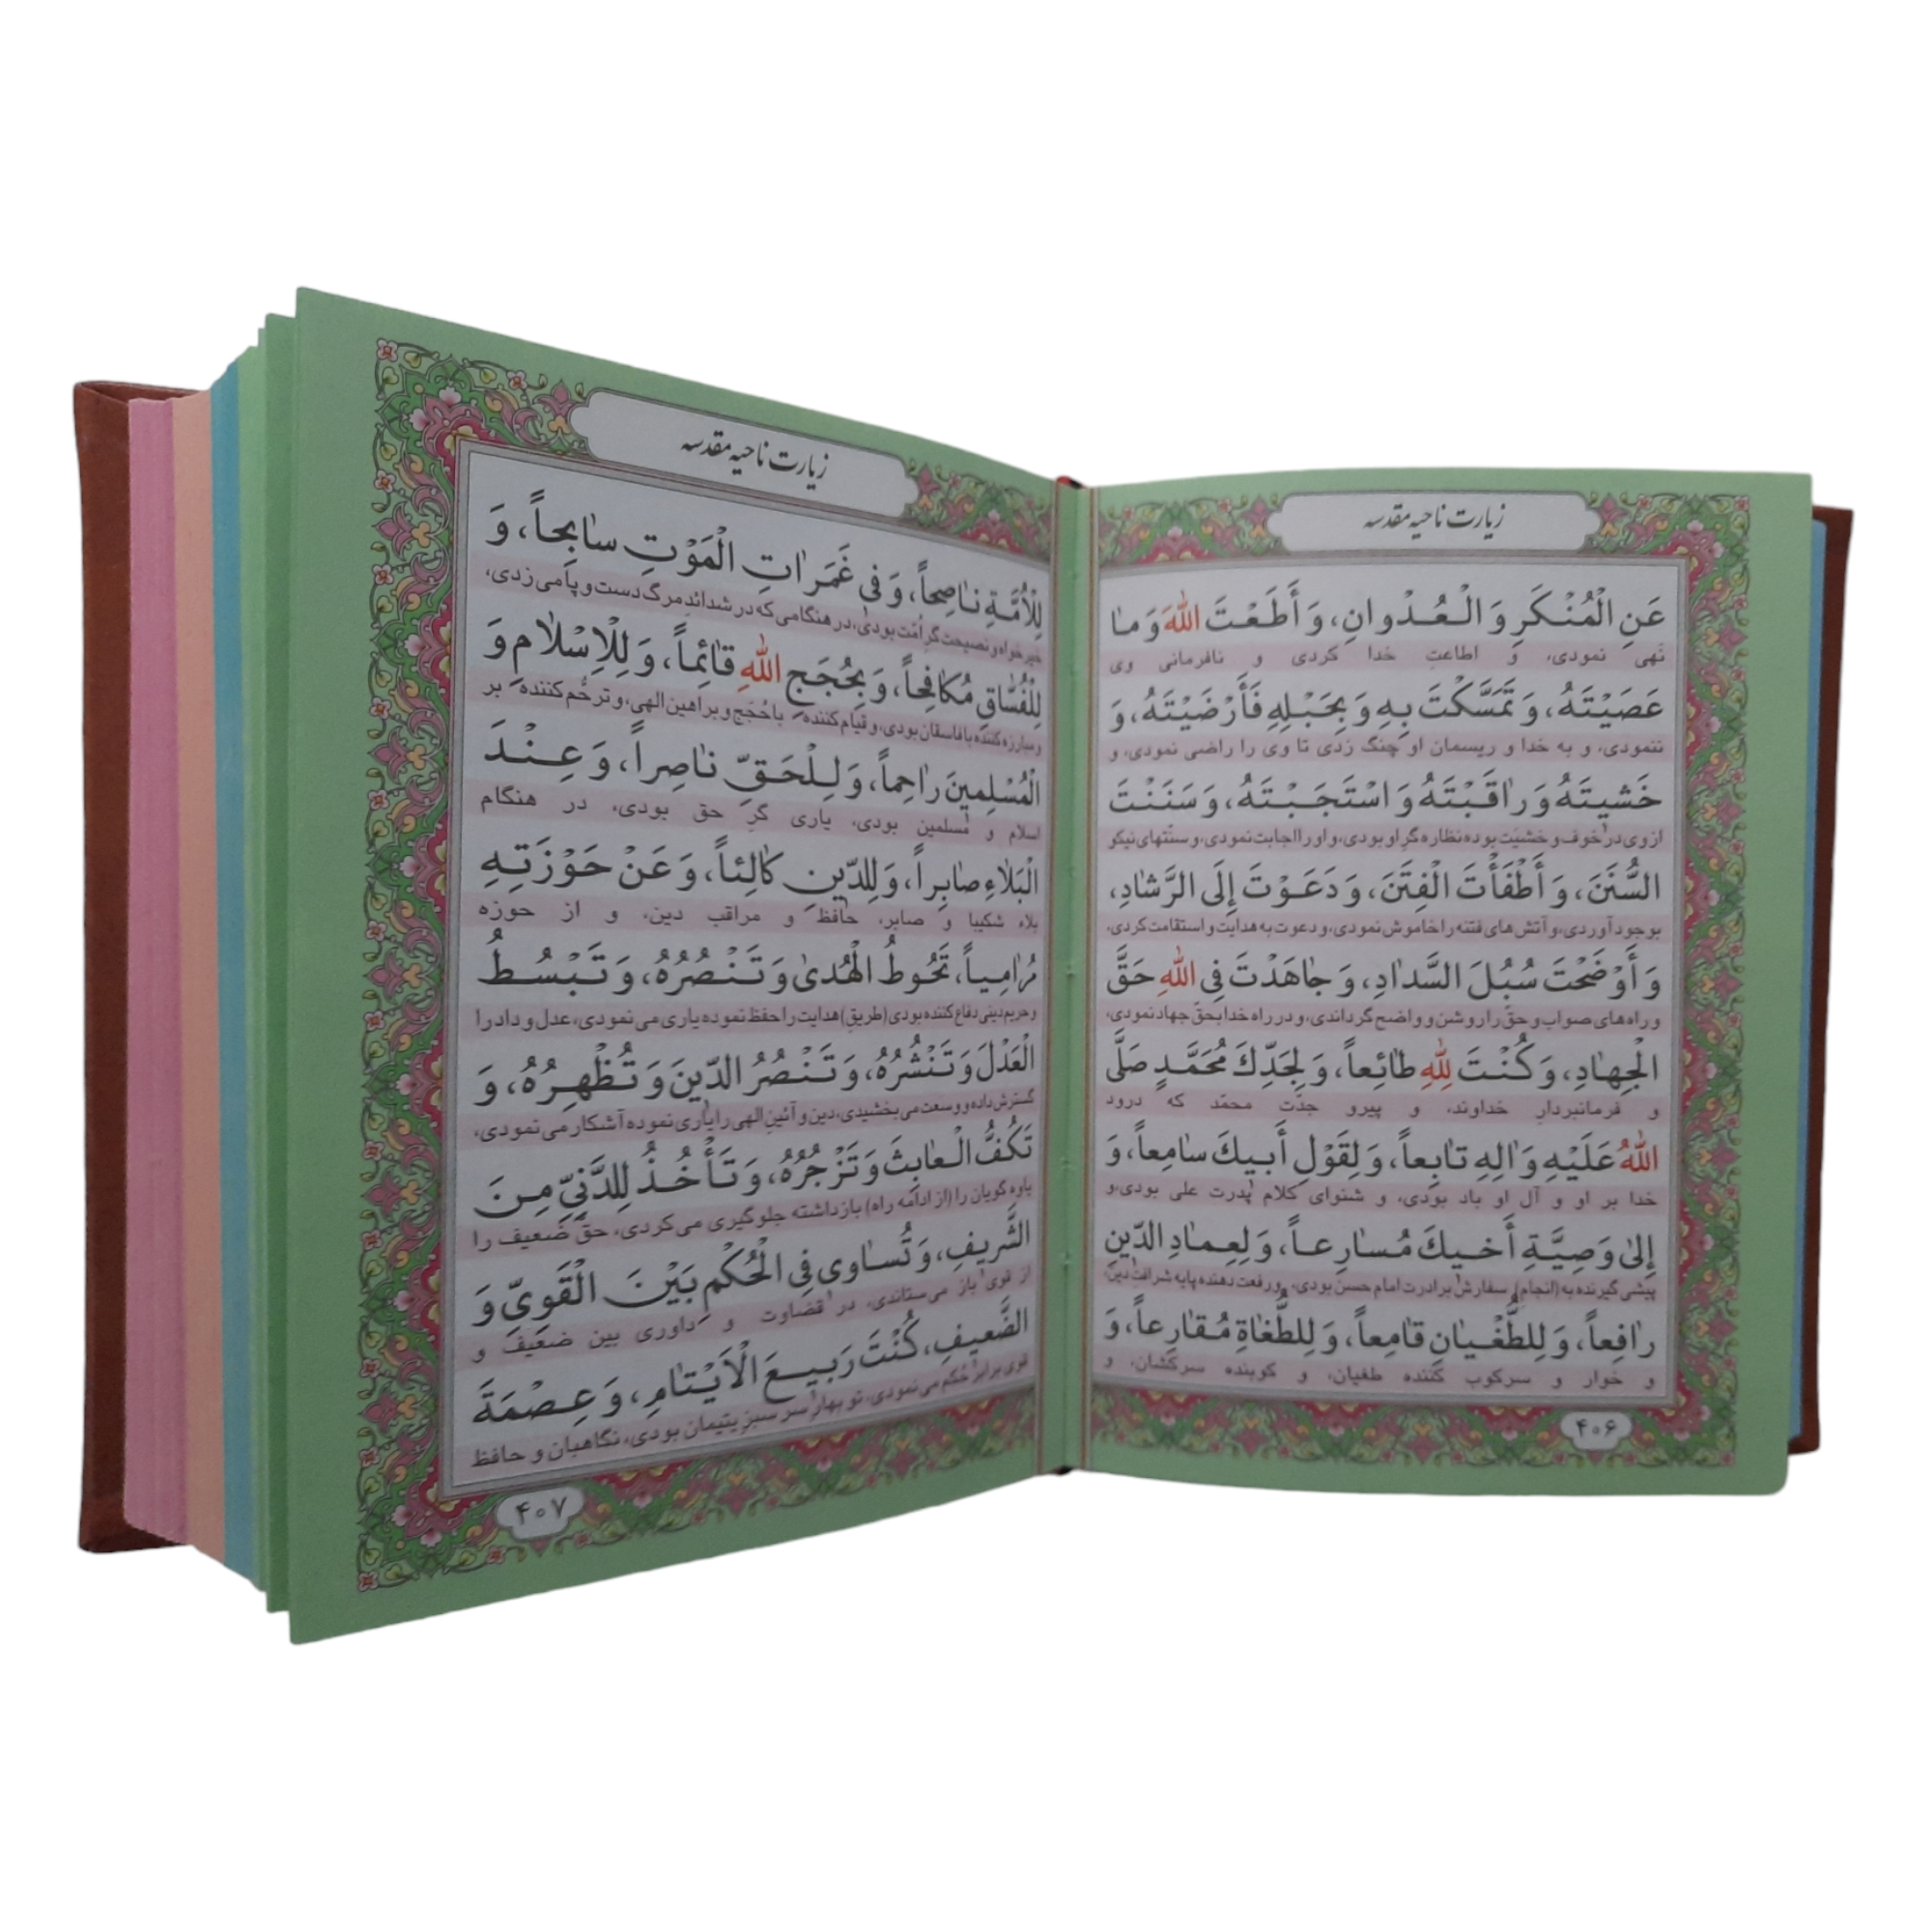 زیارت ناحیه مقدسه
عَنِ الْمُنْكَرِ وَ الْعُدْوانِ، وَ أَطَعْتَ اللّٰهَ وَ مٰا
نَهی نمودی، و اطاعتِ خدا کردی و نافرمانی وی
عَصَيْتَهُ، وَ تَمَسَّكْتَ بِهِ وَ بِحَبْلِهِ فَأَرْضَيْتَهُ، وَ
ننمودی، و به خدا و ریسمان او چنگ زدی تا وی را راضی نمودی، و
خَشيتَهُ وَ رٰاقَبْتَهُ وَ اسْتَجَبْتَهُ، وَ سَنَنْتَ
از وی در خوف و خشیَت بوده نظاره گرِ او بودی، و او را اجابت نمودی، و سنّتهای نیکو
السُّنَنَ، وَ أَطْفَأْتَ الْفِتَنَ، وَ دَعَوْتَ إِلَى الرَّشٰادِ،
بوجود آوردی، و آتش های فتنه را خاموش نمودی، و دعوت به هدایت و استقامت کردی،
وَ أَوْضَحْتَ سُبُلَ السَّدٰادِ، وَ جٰاهَدْتَ فِى اللّٰهِ حَقَّ
و راه های صواب و حقّ را روشن و واضح گرداندی، و در راه خدا بحقّ جهاد نمودی،
الْجِهٰادِ، وَ كُنْتَ لِلّٰهِ طٰائِعاً، وَ لِجَدِّكَ مُحَمَّدٍ صَلَّى
و فرمانبردارِ خداوند، و پیرو جدّت محمّد که درود
اللّٰهُ عَلَيْهِ وَ اٰلِهِ تٰابِعاً، وَ لِقَوْلِ أَبيكَ سٰامِعاً، وَ
خدا بر او و آل او باد بودی، و شنوای کلام پدرت علی بودی،و
إِلىٰ وَصِيَّةِ أَخيكَ مُسٰارِعاً، وَ لِعِمٰادِ الدّينِ
پیشی گیرنده به (انجام) سفارش برادرت امام حسن بودی، و رفعت دهنده پایه شرافت دین،
رٰافِعاً، وَ لِلطُّغْيٰانِ قٰامِعاً، وَ لِلطُّغٰاةِ مُقٰارِعاً، وَ
و خوار و سرکوب کننده طغیان، و کوبنده سرکشان، و
۴۰۶
زیارت ناحیه مقدسه
لِلْأُمَّةِ نٰاصِحاً، وَ فى غَمَرٰاتِ الْمَوْتِ سٰابِحاً، وَ
خیرخواه و نصیحت گرِ اُمّت بودی، در هنگامی که در شدائدِ مرگ دست و پا می زدی،
لِلْفُسّٰاقِ مُكٰافِحاً، وَ بِحُجَجِ اللّٰهِ قٰائِماً، وَ لِلْإِسْلٰامِ وَ
و مبارزه کننده با فاسقان بودی، و قیام کننده با حُجَج و براهین الهی، و ترحُّم کننده بر
الْمُسْلِمينَ رٰاحِماً، وَ لِلْحَقِّ نٰاصِراً، وَ عِنْدَ
اسلام و مُسلمین بودی، یاری گرِ حق بودی، در هنگام
الْبَلٰاءِ صٰابِراً، وَ لِلدّينِ كٰالِئاً، وَ عَنْ حَوْزَتِهِ
بلاء شکیبا و صابر، حافظ و مراقب دین، و از حوزه
مُرٰامِياً، تَحُوطُ الْهُدىٰ وَ تَنْصُرُهُ، وَ تَبْسُطُ
و حریم دینی دفاع کننده بودی (طریقِ) هدایت را حفظ نموده یاری می نمودی، عدل و داد را
الْعَدْلَ وَ تَنْشُرُهُ، وَ تَنْصُرُ الدّينَ وَ تُظْهِرُهُ، وَ
گسترش داده و وسعت می بخشیدی، دین و آئینِ الهی را یاری نموده آشکار می نمودی،
تَكُفُّ الْعٰابِثَ وَ تَزْجُرُهُ، وَ تَأْخُذُ لِلدَّنِىِّ مِنَ
یاوه گویان را (از ادامه راه) بازداشته جلوگیری می کردی، حقّ ضعیف را
الشَّريفِ، وَ تُسٰاوى فِى الْحُكْمِ بَيْنَ الْقَوِىِّ وَ
از قوی باز می ستاندی، در قضاوت و داوری بین ضعیف و
الضَّعيفِ، كُنْتَ رَبيعَ الْاَيْتٰامِ، وَ عِصْمَةَ
قوی برابر حُکم می نمودی، تو بهار سر سبزِ یتیمان بودی، نگاهبان و حافظ
۴۰۷